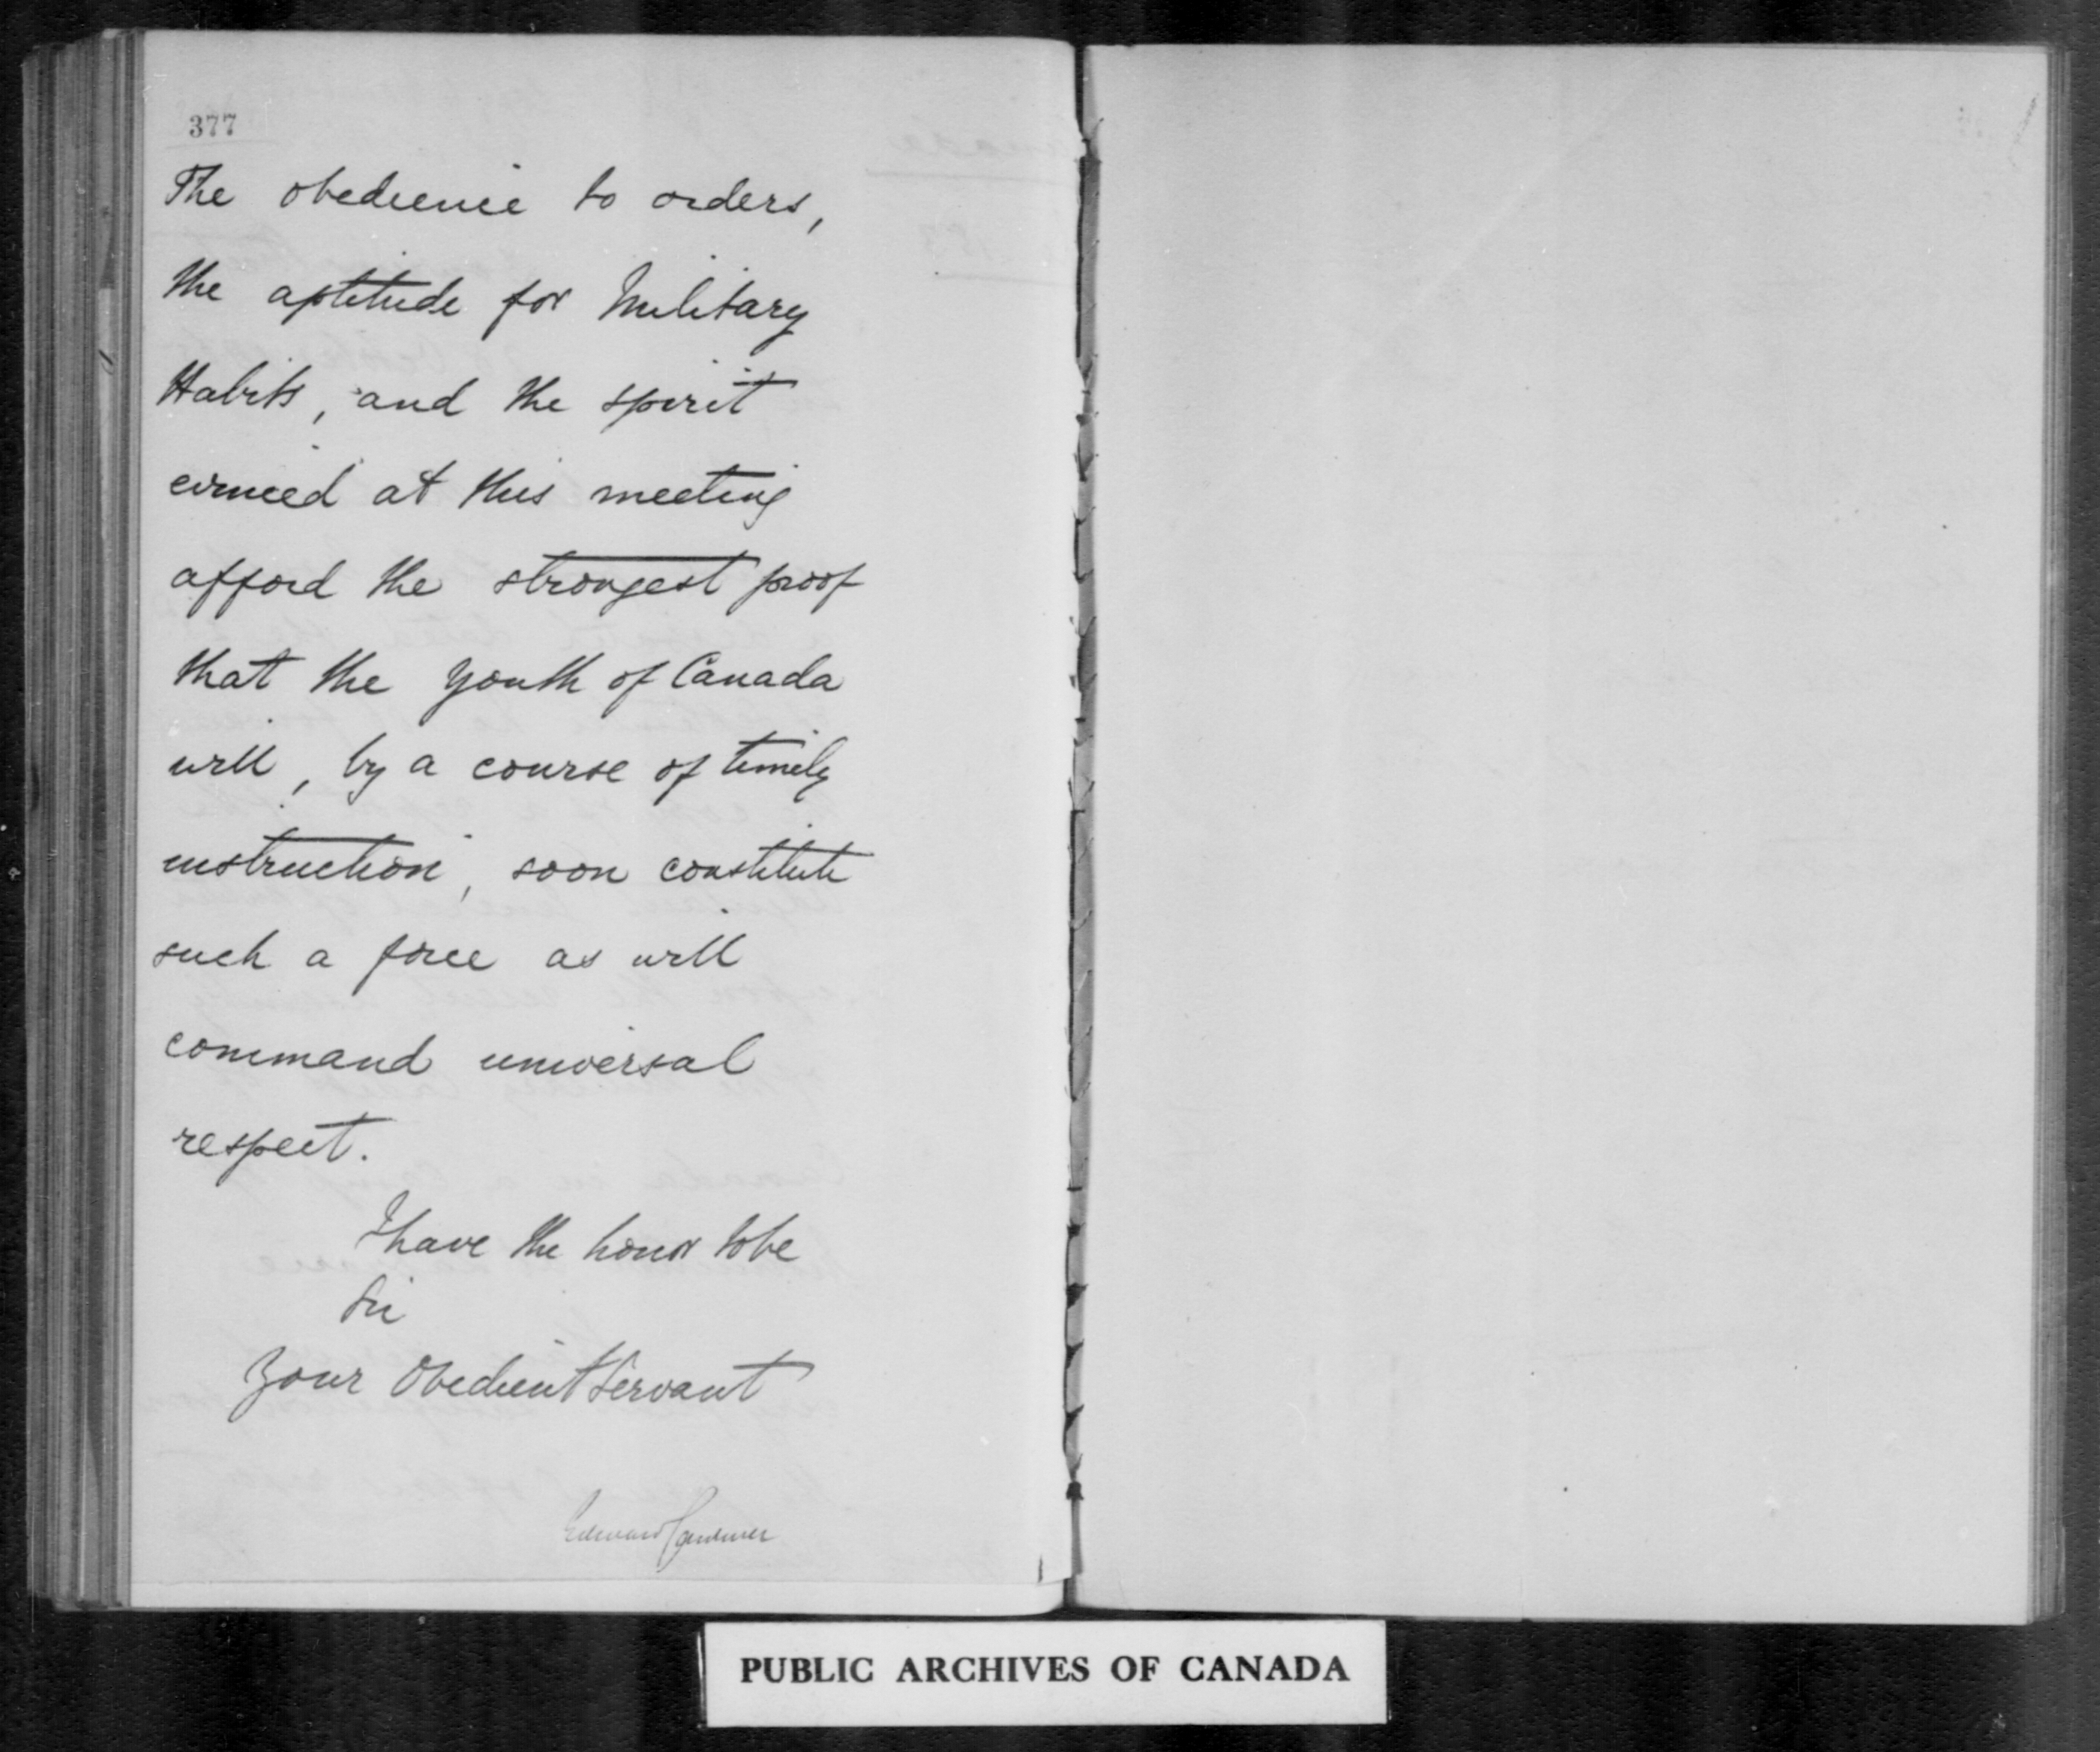 377
The obedience to orders,
the aptitude for Military
Habits, and the spirit
evinced at this meeting
afford the strongest proof
that the youth of Canada
will, by a course of timely
instruction, soon constitute
such a force as will
command universal
respect.
I have the honor to be
Sir
Your Obedient Servant
Edward Gardiner
PUBLIC ARCHIVES OF CANADA